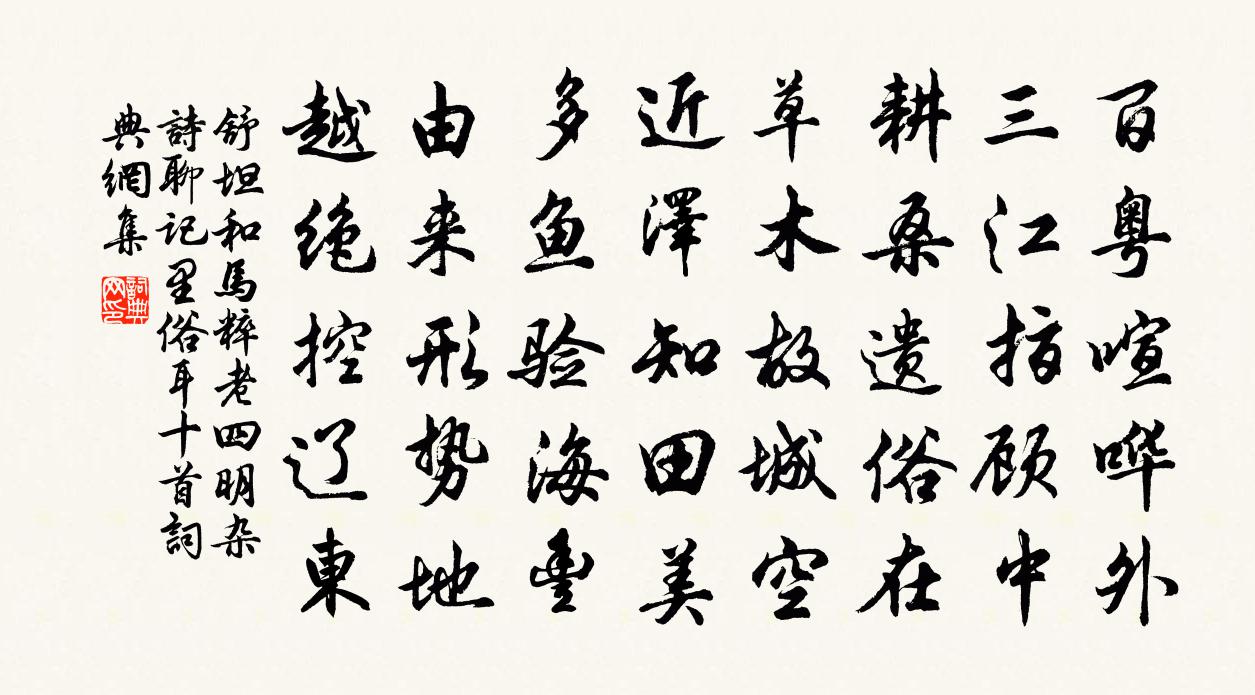 百粤喧哗外
三江指顾中
耕桑遗俗在
草木故城空
近澤知田美
多鱼验海豊
由来形势地
越绝控辽東
舒坦和馬粹老四明杂
詩聊记里俗耳十首詞
典網集
詞典
网印